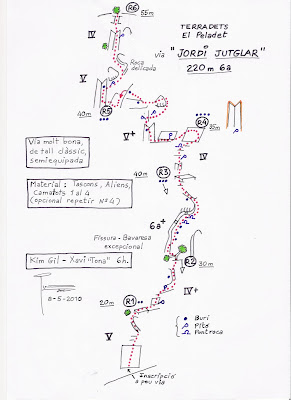 TERRADETS
El Peladet
via
"JORDI JUTGLAR"
220 m 6a
R6
55m
IV
Roca
delicada
V
40m
R5
V+
P
R4
35m
IV
Via molt bona,
de tall clàssic,
semiequipada.
40m
R3
Material: Tascons, Aliens,
Camalots 1 al 4
(opcional repetir Nº 4)
6a+
Fissura-Bavaresa
excepcional
R2
30m
Kim Gil - Xavi "Tona" 6h.
8-5-2010
IV+
20m
R1
V
Burí
Pitó
Pontroca
Inscripció
a peu via